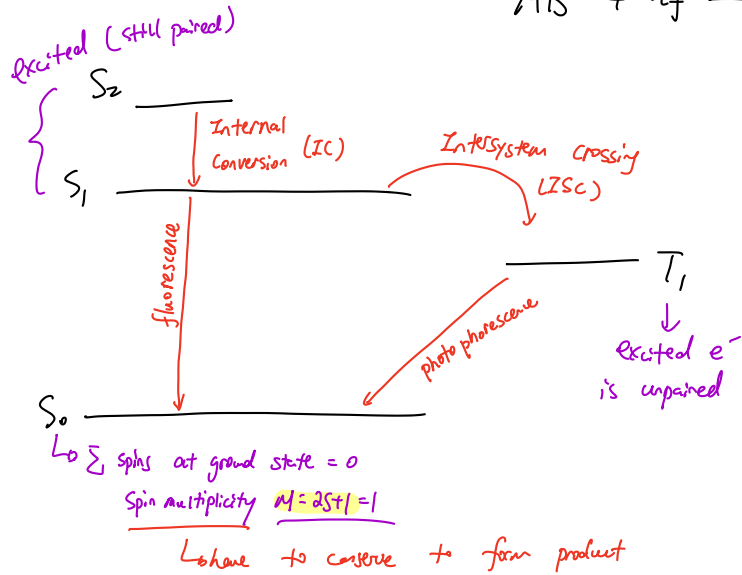 excited (still paired)
S2
Internal
Conversion (IC)
Intersystem crossing
(ISC)
S1
fluorescence
T1
photophorescence
excited e-
is unpaired
S0
Σ spins at ground state = 0
Spin multiplicity M = 2S+1 = 1
have to conserve to form product